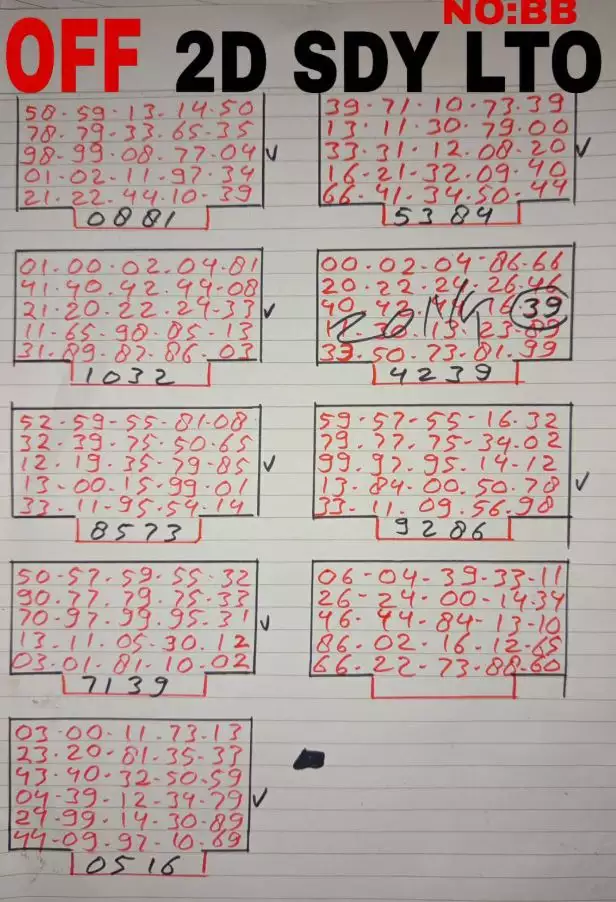 NO:BB
OFF 2D SDY LTO
58-59-13-14-50
78-79-33-65-35
98-99-08-77-04
01-02-11-97-34
21-22-44-10-39
0881
39-71-10-73-39
13-11-30-79-00
33-31-12-08-20
16-21-32-09-40
66-41-34-50-44
5384
01-00-02-04-81
41-40-42-44-08
21-20-22-24-33
11-65-98-85-13
31-89-87-86-03
1032
00-02-04-86-66
20-22-24-26-46
40 42 39
13 23-89
33-50-73-81-99
4239
52-59-55-81-08
32-39-75-50-65
12-19-35-79-85
13-00-15-99-01
33-11-95-54-14
8573
59-57-55-16-32
79-77-75-34-02
99-97-95-14-12
13-84-00-50-78
33-11-09-56-98
9286
50-57-59-55-32
90-77-79-75-33
70-97-99-95-31
13-11-05-30-12
03-01-81-10-02
7139
06-04-39-33-11
26-24-00-14-34
46-44-84-13-10
86-02-16-12-65
66-22-73-88-60
03-00-11-73-13
23-20-81-35-33
43-40-32-50-59
04-39-12-34-79
24-99-14-30-89
44-09-97-10-69
0516